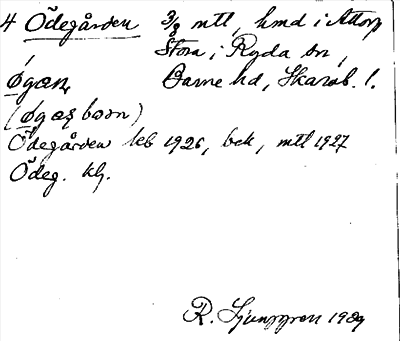 4 Ödegården 3/8 mtl, hmd i Attorp
Stora i Ryda sn,
Øgæn, Barne hd, Skarab. l.
(Øgæṣ børn)
Ödegården leb 1926, bek, mtl 1927
Ödeg. kh.
R. Ljunggren 1929